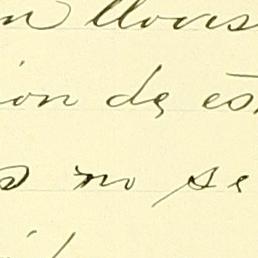 n lloves
ion de es
s no se